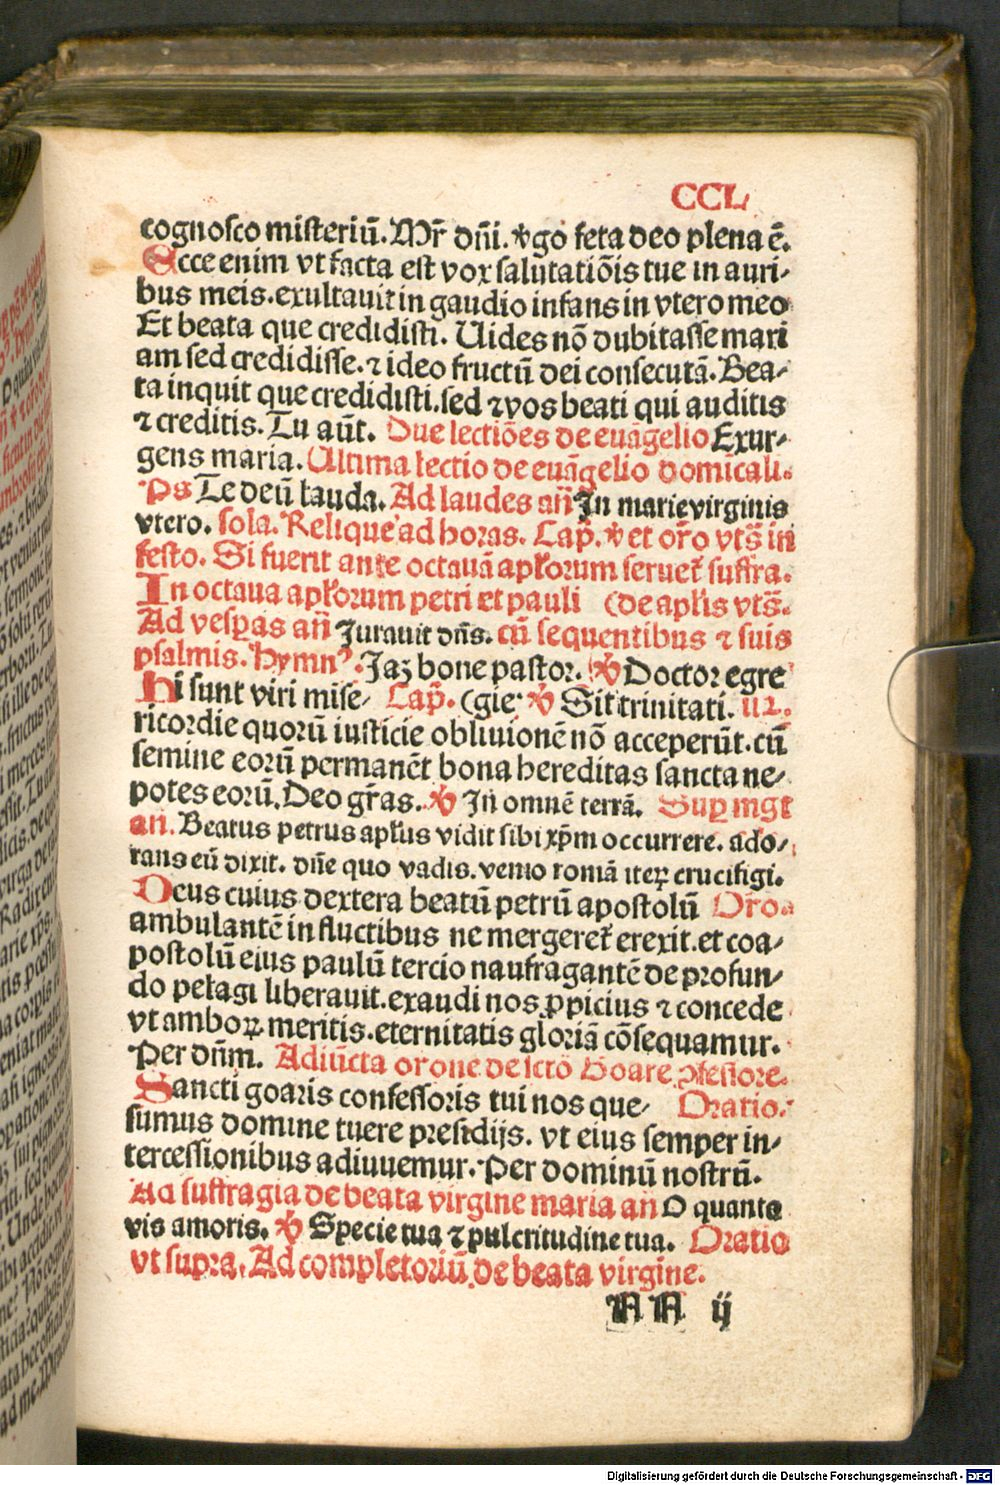 CCL
cognosco misteriū. Mr̄ dn̄i. ꝟgo feta deo plena ē.
Ecce enim vt facta est vox salutatiōis tue in auri⸗
bus meis. exultauit in gaudio infans in vtero meo
Et beata que credidisti. Uides nō dubitasse mari
am sed credidisse. ⁊ ideo fructū dei consecutā. Bea⸗
ta inquit que credidisti. sed ⁊ vos beati qui auditis
⁊ creditis. Tu aūt. Due lectiōes de euāgelio Exur⸗
gens maria. Ultima lectio de euāgelio domīcali.
Ps Te deū lauda. Ad laudes an̄ In marie virginis
vtero. sola. Relique ad horas. Cap̄. ꝟ et oro vts̄ in
festo. Si fuerit ante octauā apl'orum seruet̄ suffra.
In octaua apl'orum petri et pauli (de apl'is vts̄.
Ad vesp̄as an̄ Jurauit dn̄s. cū sequentibus ⁊ suis
psalmis. Hymnꝰ. Jaz bone pastor. ꝟ Doctor egre
Hi sunt viri mise⸗ Cap̄. (gie ꝟ Sit trinitati. uz.
ricordie quorū iusticie obliuionē nō acceperūt. cū
semine eorū permanēt bona hereditas sancta ne⸗
potes eorū. Deo gr̄as. ꝟ In omnē terrā. Suꝑ mgt
an̄. Beatus petrus apl'us vidit sibi xp̄m occurrere. ado⸗
rans eū dixit. dn̄e quo vadis. venio romā iteꝝ crucifigi.
Deus cuius dextera beatū petrū apostolū Oro.
ambulantē in fluctibus ne mergeret̄ erexit. et coa⸗
postolū eius paulū tercio naufragantē de profun⸗
do pelagi liberauit. exaudi nos ꝓpicius ⁊ concede
vt amboꝝ meritis. eternitatis gloriā cōsequamur.
Per dn̄m. Adiūcta orone de scto Goare ꝯfessore.
Sancti goaris confessoris tui nos que⸗ Oratio.
sumus domine tuere presidijs. vt eius semper in⸗
tercessionibus adiuuemur. Per dominū nostrū.
Ad suffragia de beata virgine maria an̄ O quanta
vis amoris. ꝟ Specie tua ⁊ pulcritudine tua. Oratio
vt supra. Ad completoriū de beata virgine.
AA ij
Digitalisierung gefördert durch die Deutsche Forschungsgemeinschaft - DFG